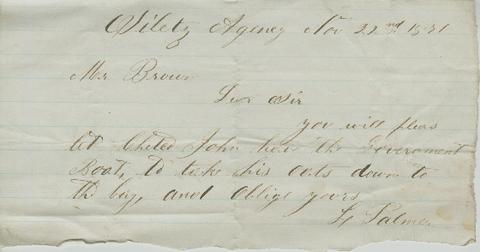 Siletz Agency Nov 22nd 1871
Mr Brown
Dear Sir
you will pleas
let John have the Goverment
Boat, to take his oats down to
the bay, and oblige yours
Palmer